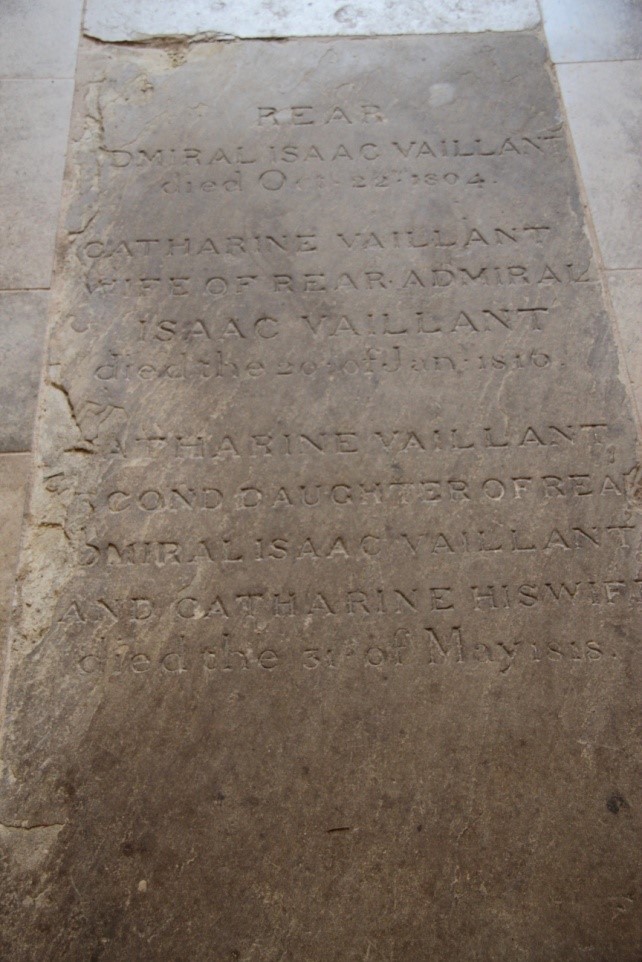 REAR
ADMIRAL ISAAC VAILLANT
died Oct. 22d. 1804.
CATHARINE VAILLANT
WIFE OF REAR ADMIRAL
ISAAC VAILLANT
died the 20 of Jan. 1816.
CATHARINE VAILLANT,
SECOND DAUGHTER OF REAR
ADMIRAL ISAAC VAILLANT
AND CATHARINE HIS WIFE
died the 31st of May 1818.